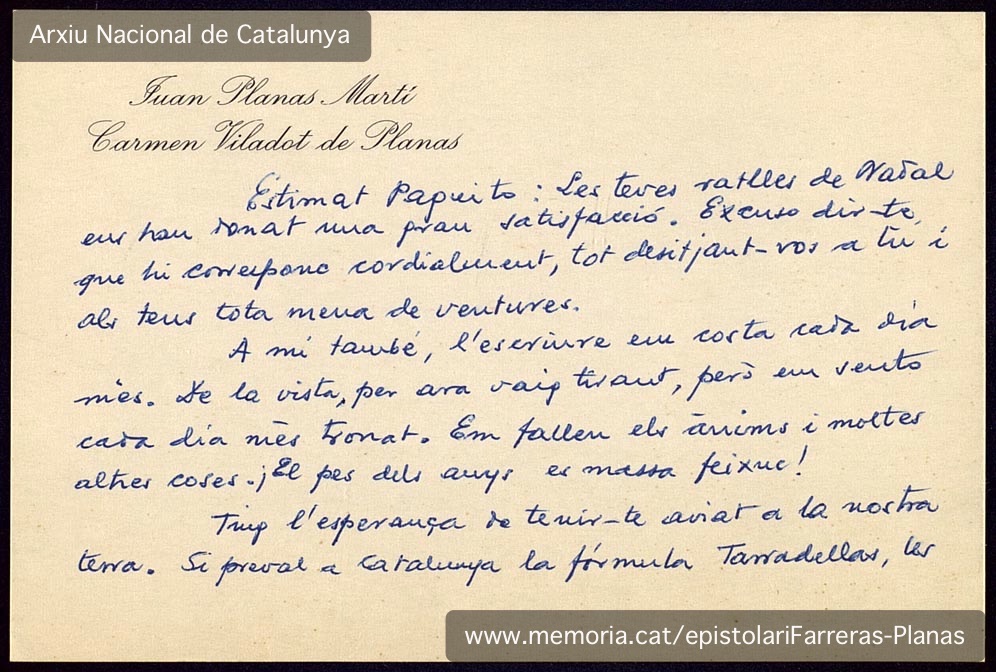 Arxiu Nacional de Catalunya
Juan Planas Martí
Carmen Viladot de Planas
Estimat Paquito: Les teves ratlles de Nadal
ens han donat una gran satisfacció. Excuso dir-te
que hi corresponc cordialment, tot desitjant-vos a tu i
als teus tota mena de ventures.
A mi també, l'escriure em costa cada dia
més. De la vista, per ara vaig tirant, però em sento
cada dia més tronat. Em fallen els ànims i moltes
altres coses. ¡El pes dels anys es massa feixuc!
Tinc l'esperança de tenir-te aviat a la nostra
terra. Si preval a Catalunya la fórmula Tarradellas, les
www.memoria.cat/epistolariFarreras-Planas